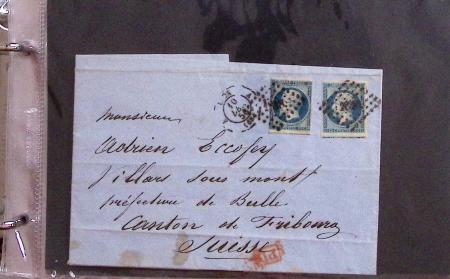 monsieur
Adrien Eccofey
Villars sous mont
préfecture de Bulle
Canton de Fribourg
Suisse